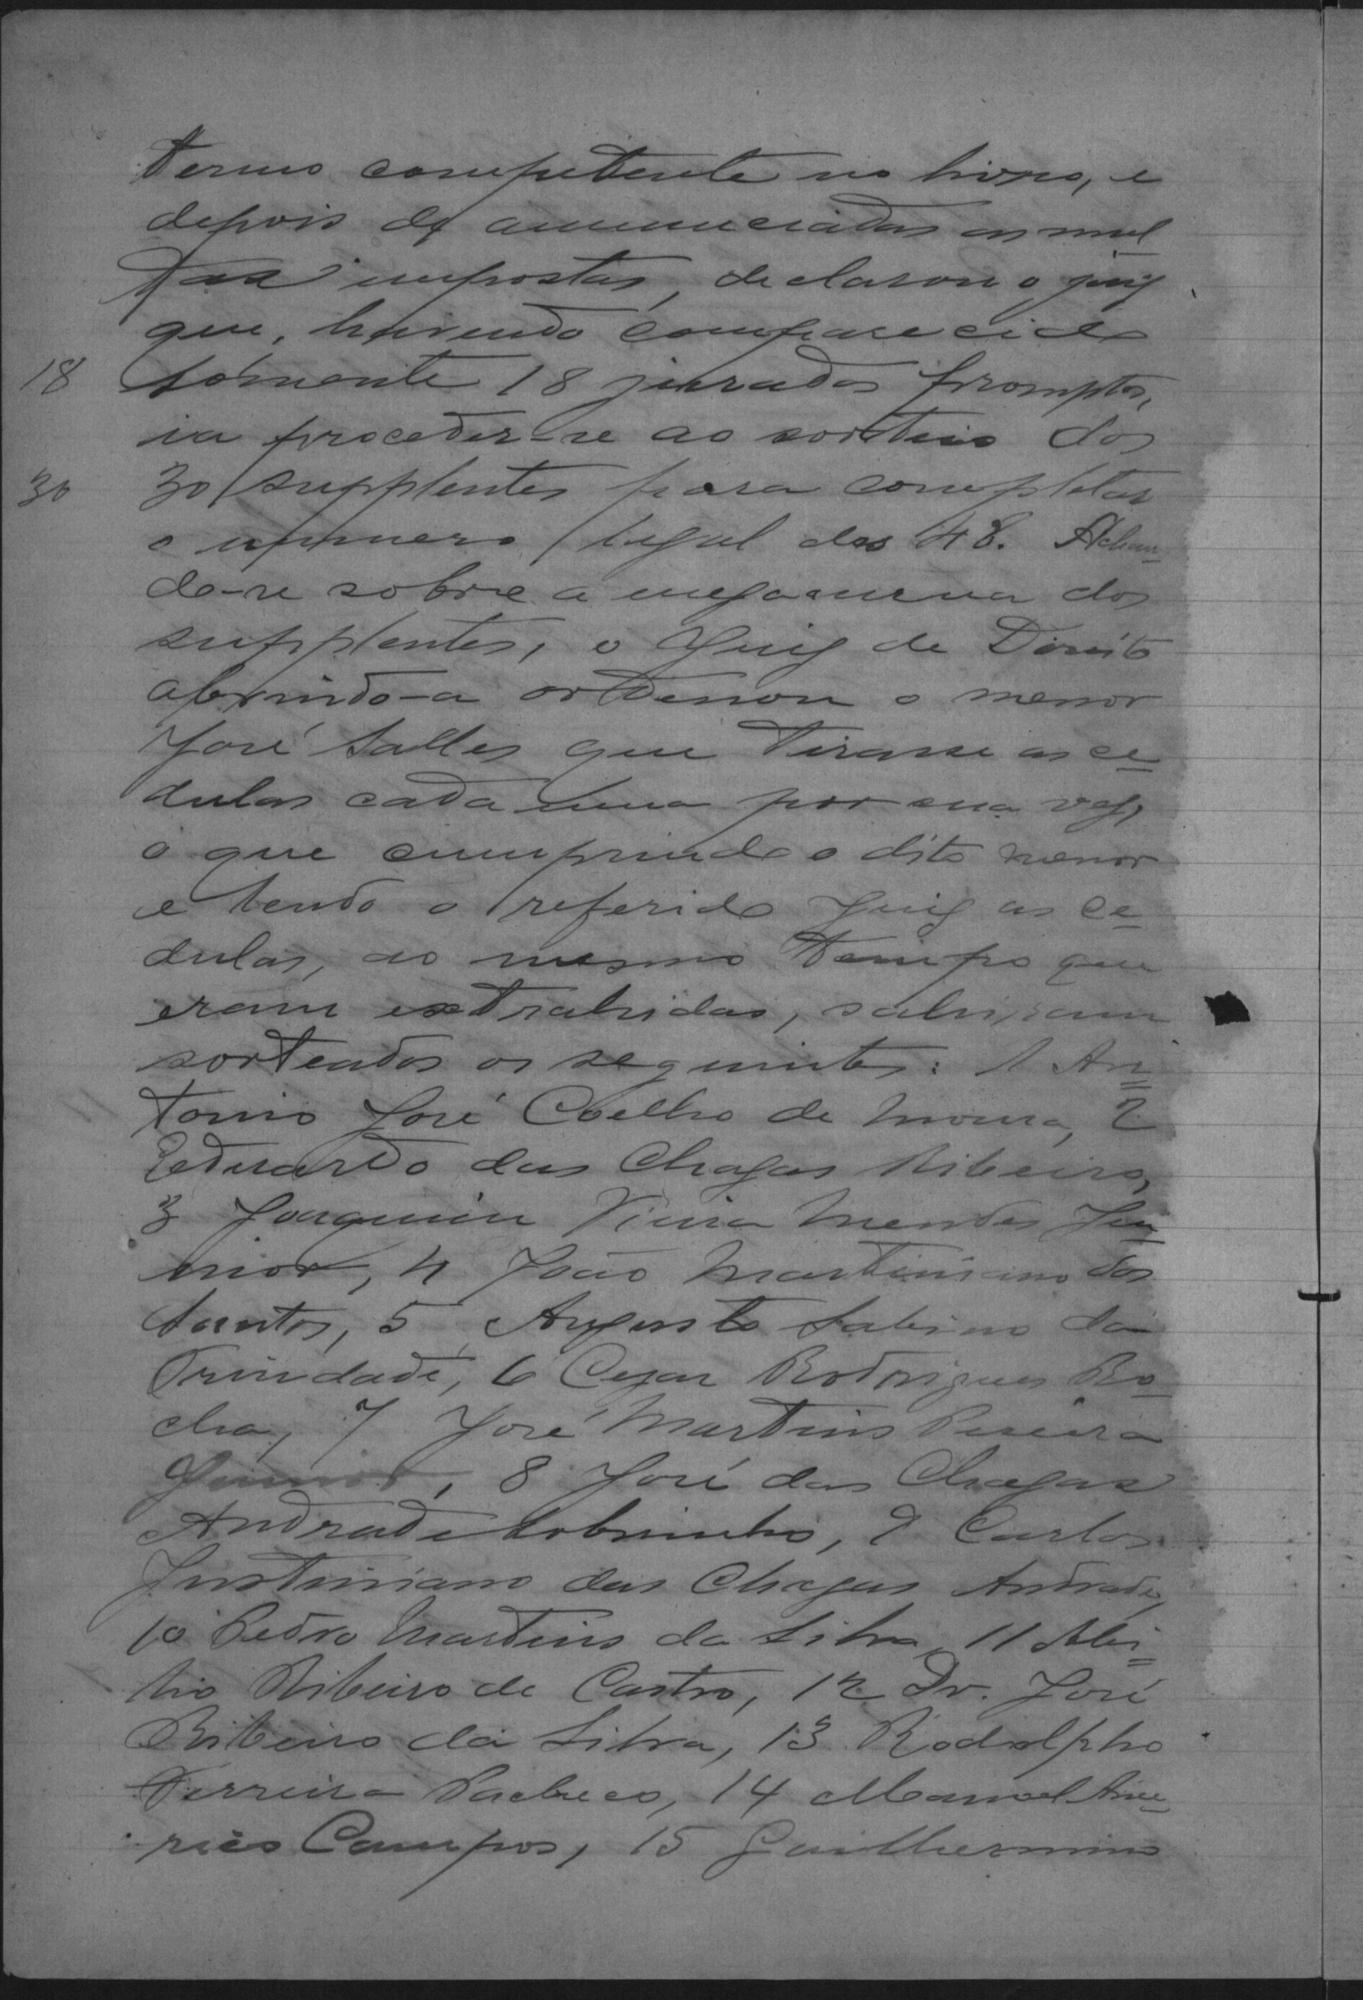 termo competente no livro, e
depois de annunciadas as mul
tas impostas, declarou o juiz
que, havendo comparecido
18 sómente 18 jurados promptos,
ia proceder-se ao sorteio dos
30 30 supplentes para completar
o numero legal dos 48. Achan
do-se sobre a meza a urna dos
supplentes, o Juiz de Direito
abrindo-a ordenou o menor
José Salles que tirasse as ce-
dulas cada uma por sua vez,
o que cumprindo o dito menor
e lendo o referido Juiz as ce-
dulas, ao mesmo tempo que
eram extrahidas, sahiram
sorteados os seguintes: 1 An=
tonio José Coelho de Moura, 2
Eduardo das Chagas Ribeiro,
3 Joaquim Vieira Mendes Ju-
nior, 4 João Martiniano dos
Santos, 5 Augusto Sabino da
Trindade, 6 Cezar Rodrigues Ro-
cha, 7 José Martins Pereira
Junior, 8 José das Chagas
Andrade Sobrinho, 9 Carlos
Justiniano das Chagas Andrade,
10 Pedro Martins da Silva, 11
Ribeiro de Castro, 12 Dr. José
Ribeiro da Silva, 13 Rodolpho
Ferreira Pacheco, 14 Manoel Ame-
rico Campos, 15 Guilhermino